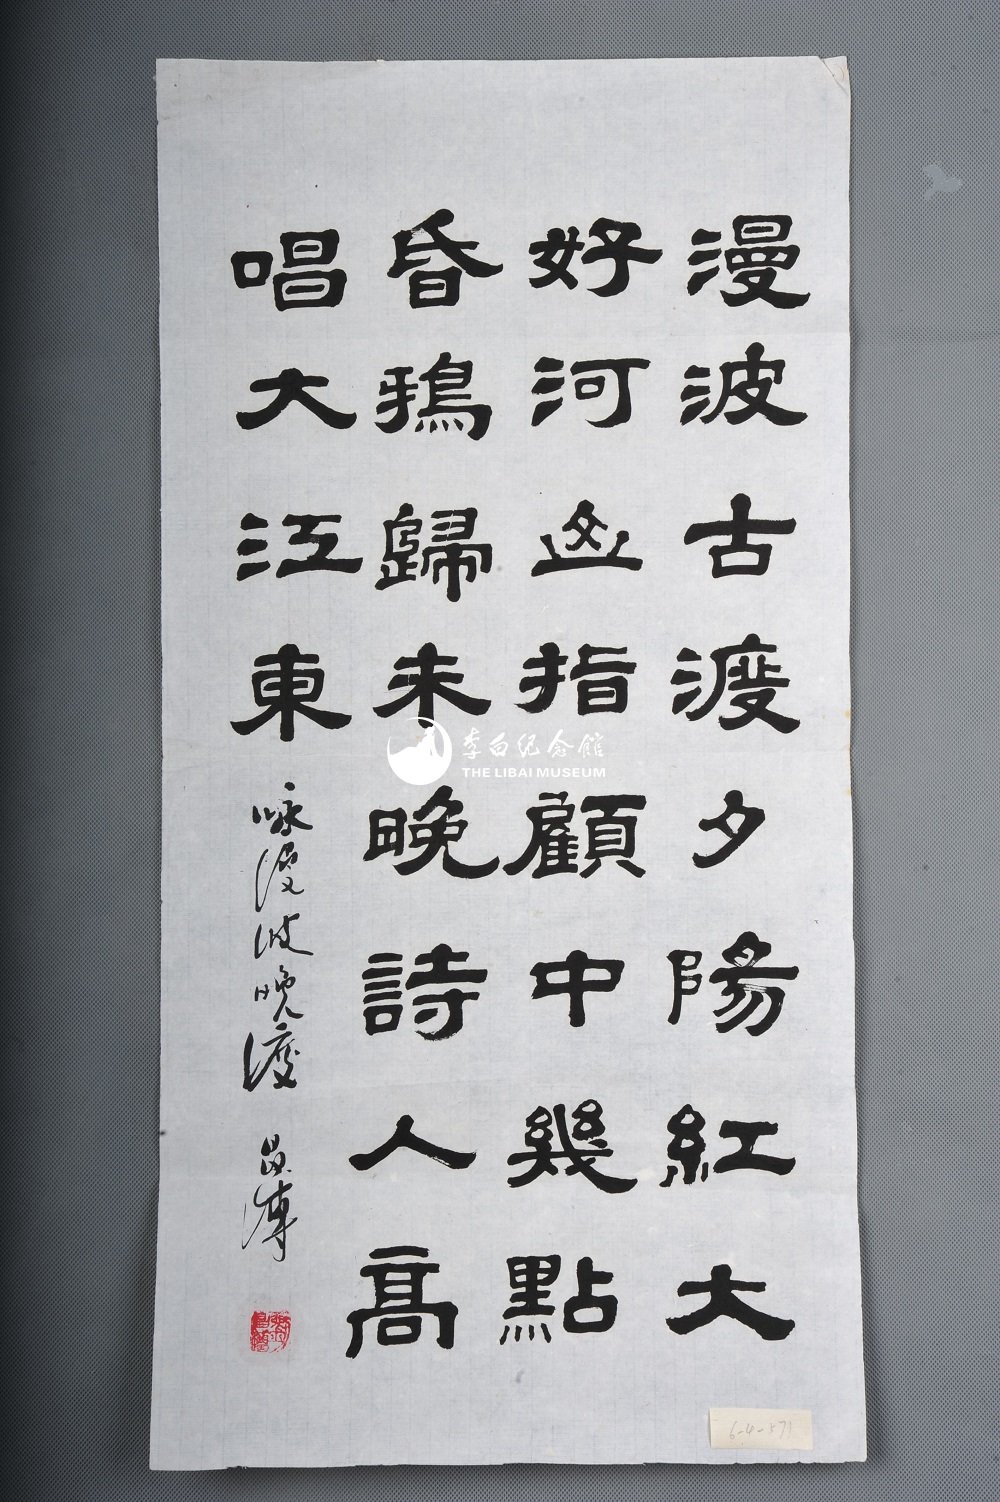 漫波古渡夕陽紅大
好河山指顧中幾點
昏鴉歸未晚詩人高
唱大江東
咏漫波晚渡
李白纪念館
THE LIBAI MUSEUM
6-4-571